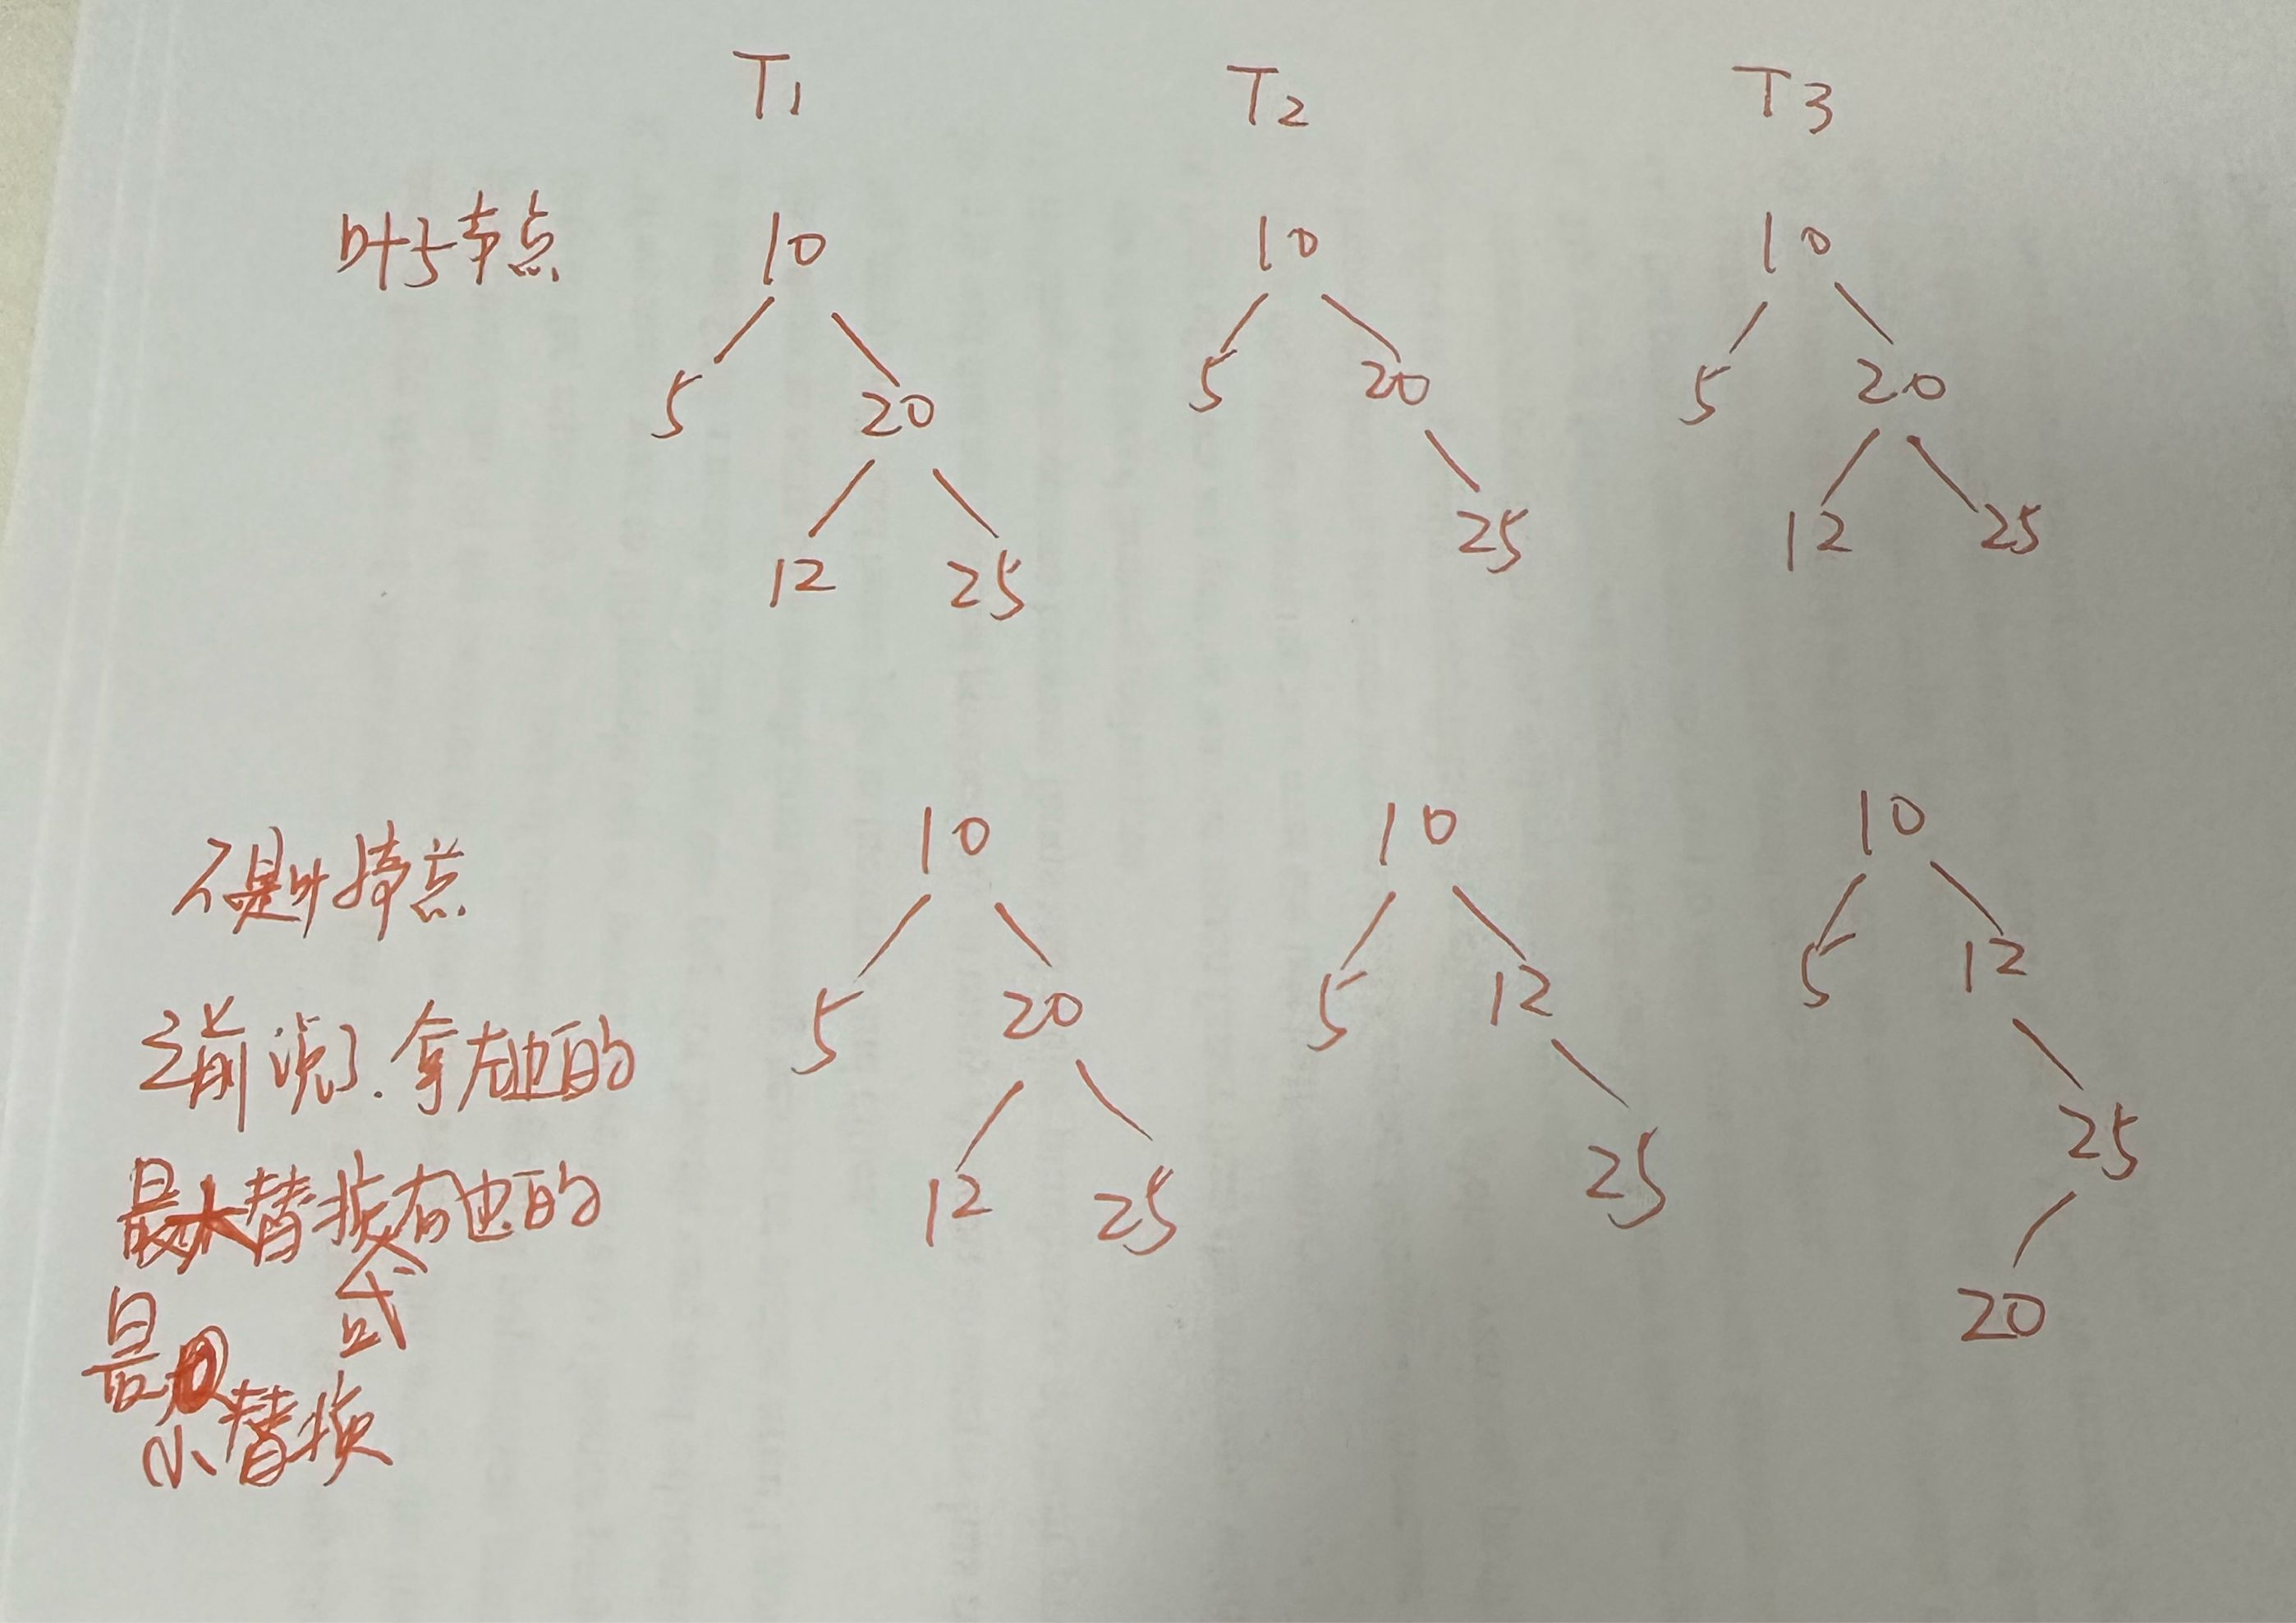 T1 T2 T3
叶子节点 10 10 10
5 20 5 20 5 20
12 25 25 12 25
10 10 10
不是叶子节点
5 20 5 12 5 12
之前说了.拿左边的
12 25 25 25
最大替换右边的
或
20
最
小替换